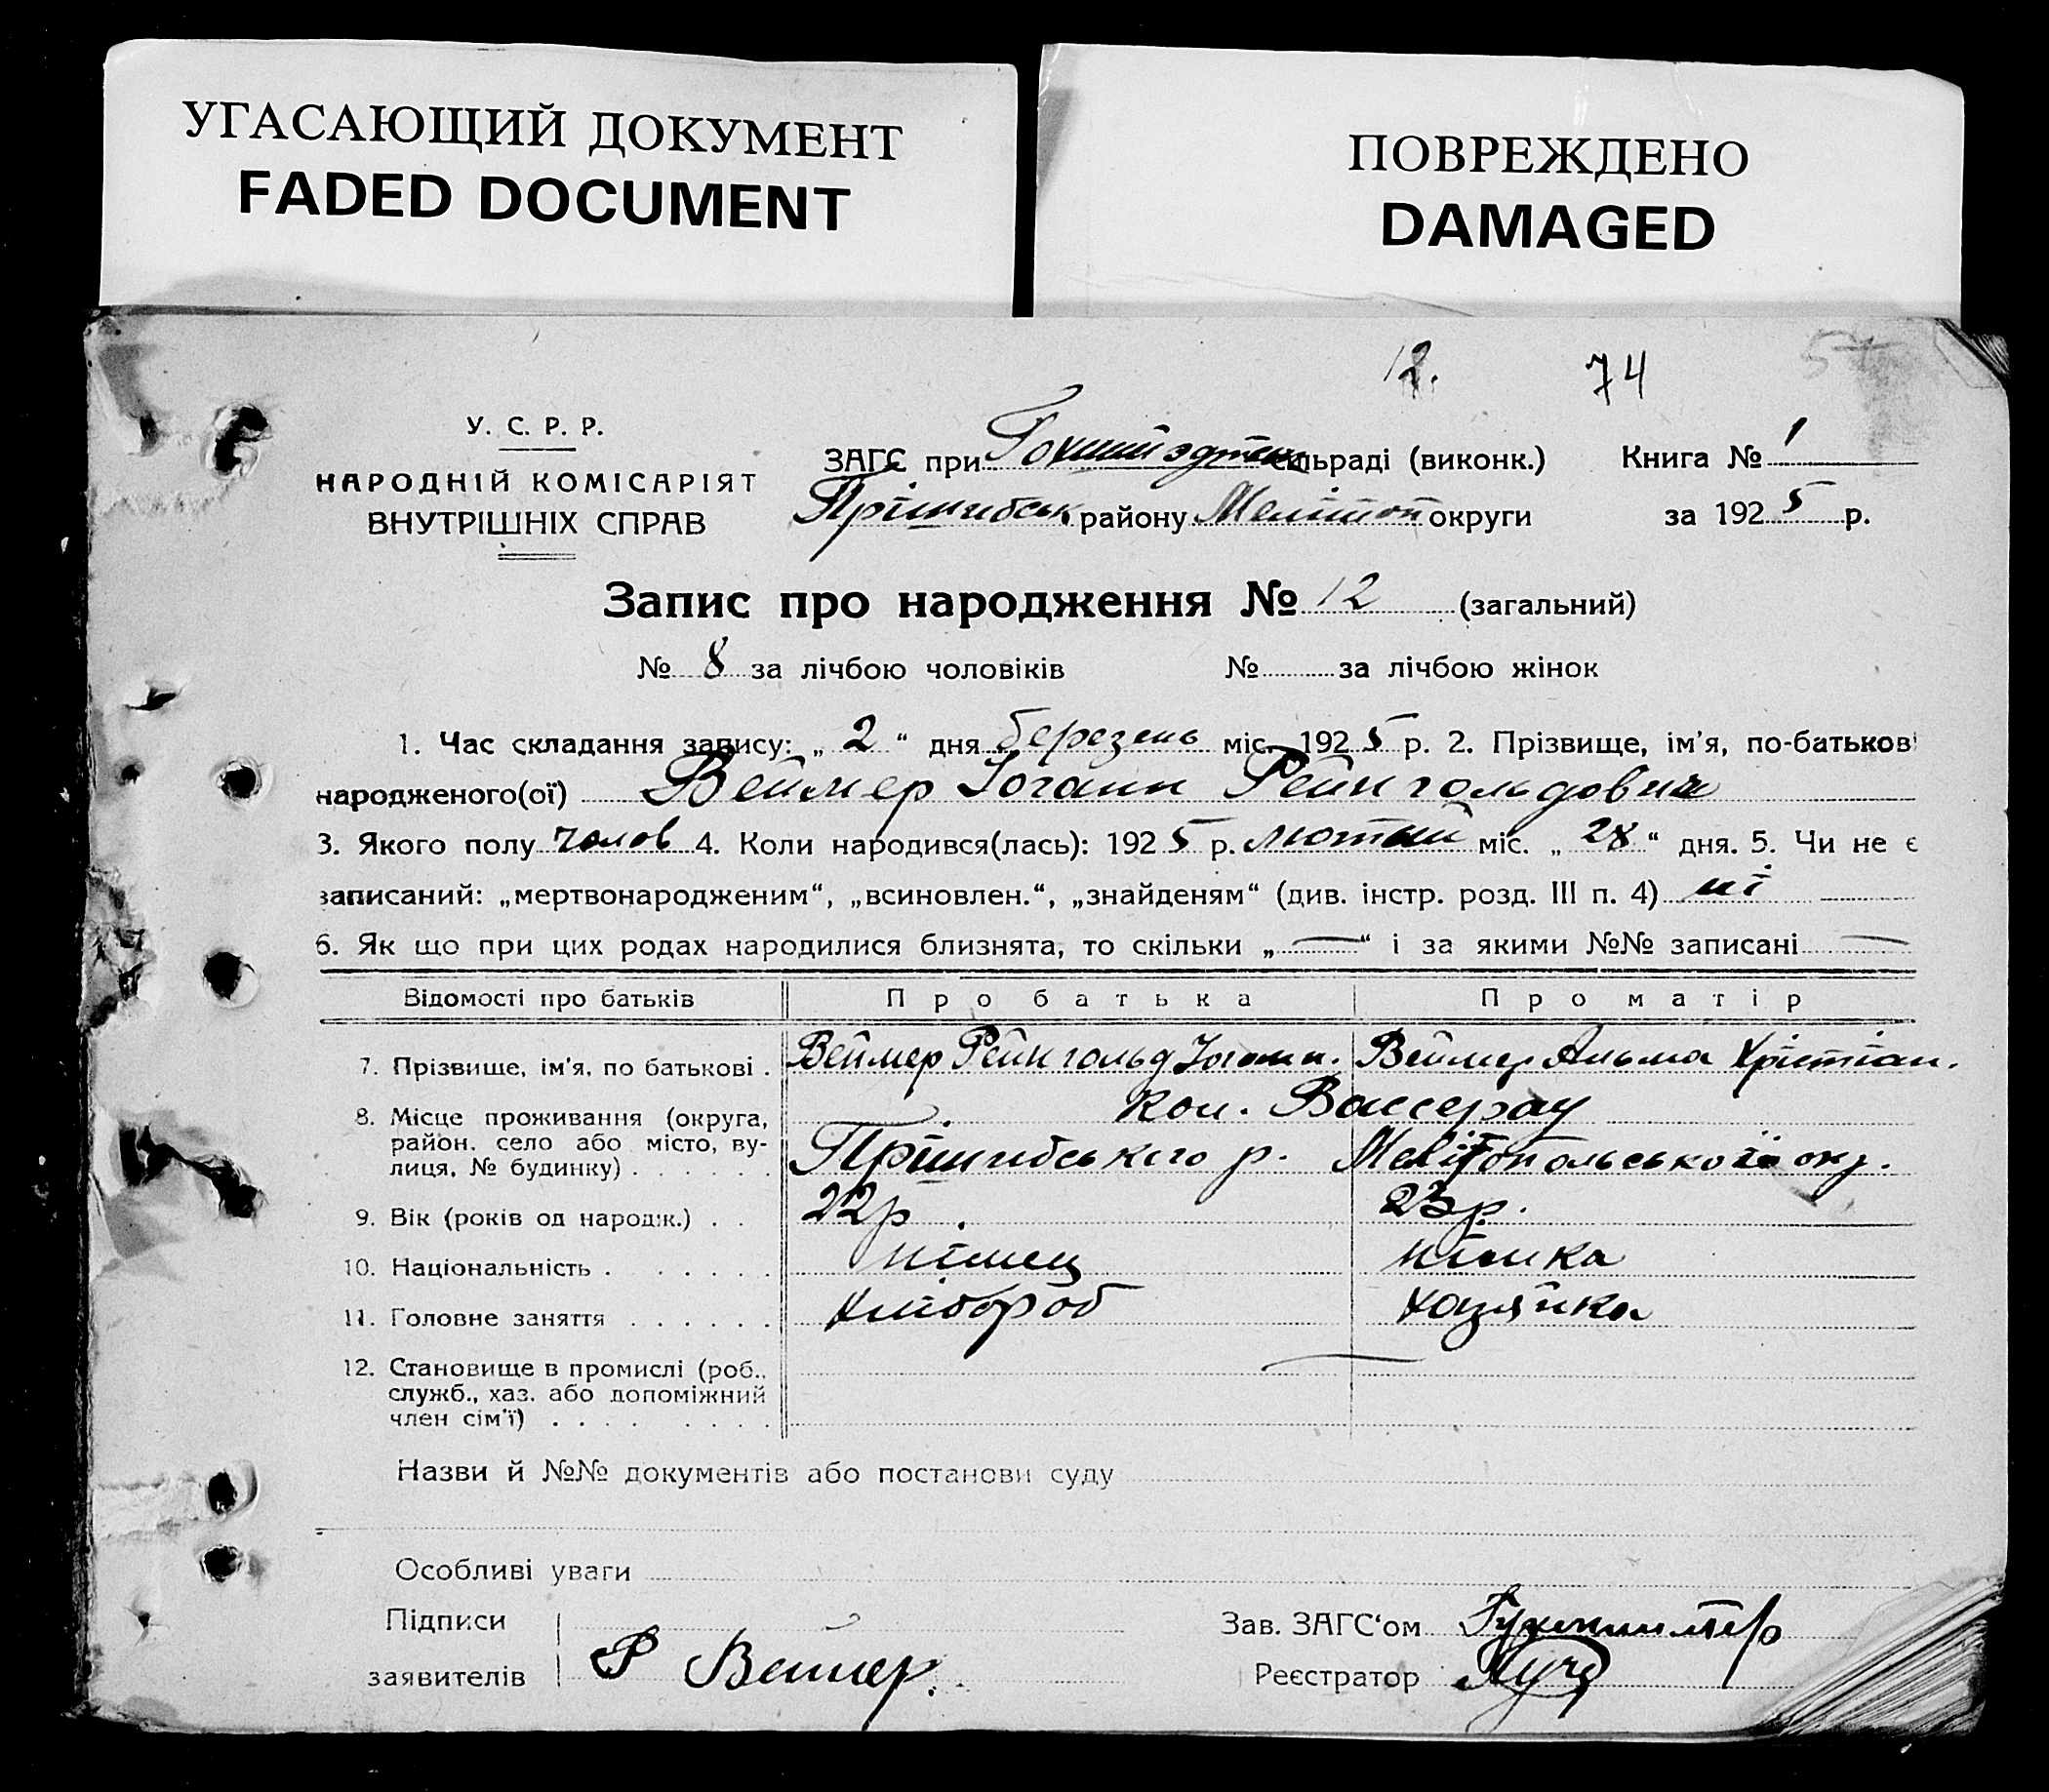 УГАСАЮЩИЙ ДОКУМЕНТ
FADED DOCUMENT
ПОВРЕЖДЕНО
DAMAGED
12. 74
У. С. Р. Р.
НАРОДНІЙ КОМІСАРІЯТ
ВНУТРІШНІХ СПРАВ
ЗАГС при Гохштэдтск сільраді (виконк.) Книга № 1
Прішибськ району Мелітоп округи за 1925 р.
Запис про народження № 12 (загальний)
№ 8 за лічбою чоловіків № за лічбою жінок
1. Час складання запису: „2“ дня березень міс. 1925 р. 2. Прізвище, ім'я, по-батькові
народженого(ої) Веймер Іоганн Рейнгольдович
3. Якого полу чолов 4. Коли народився(лась): 1925 р. лютый міс. „28“ дня. 5. Чи не є
записаний: „мертвонародженим“, „всиновлен.“, „знайденям“ (див. інстр. розд. III п. 4) ні
6. Як що при цих родах народилися близнята, то скільки „—“ і за якими №№ записані —
Відомості про батьків Про батька Про матір
7. Прізвище, ім'я, по батькові . Веймер Рейнгольд Іоганн. Веймер Альма Хрістіан.
8. Місце проживання (округа, район. село або місто, вулиця, № будинку) Кол. Вассерау
Прішибського р. Мелітопольської окр.
9. Вік (років од народж.) . . 22р. 23р.
10. Національність . німец німка
11. Головне заняття хлібороб хазяйка
12. Становище в промислі (роб., служб., хаз. або допоміжний член сім'ї) —
Назви й №№ документів або постанови суду
Особливі уваги
Підписи заявителів Р Веймер.
Зав. ЗАГС'ом
Реєстратор